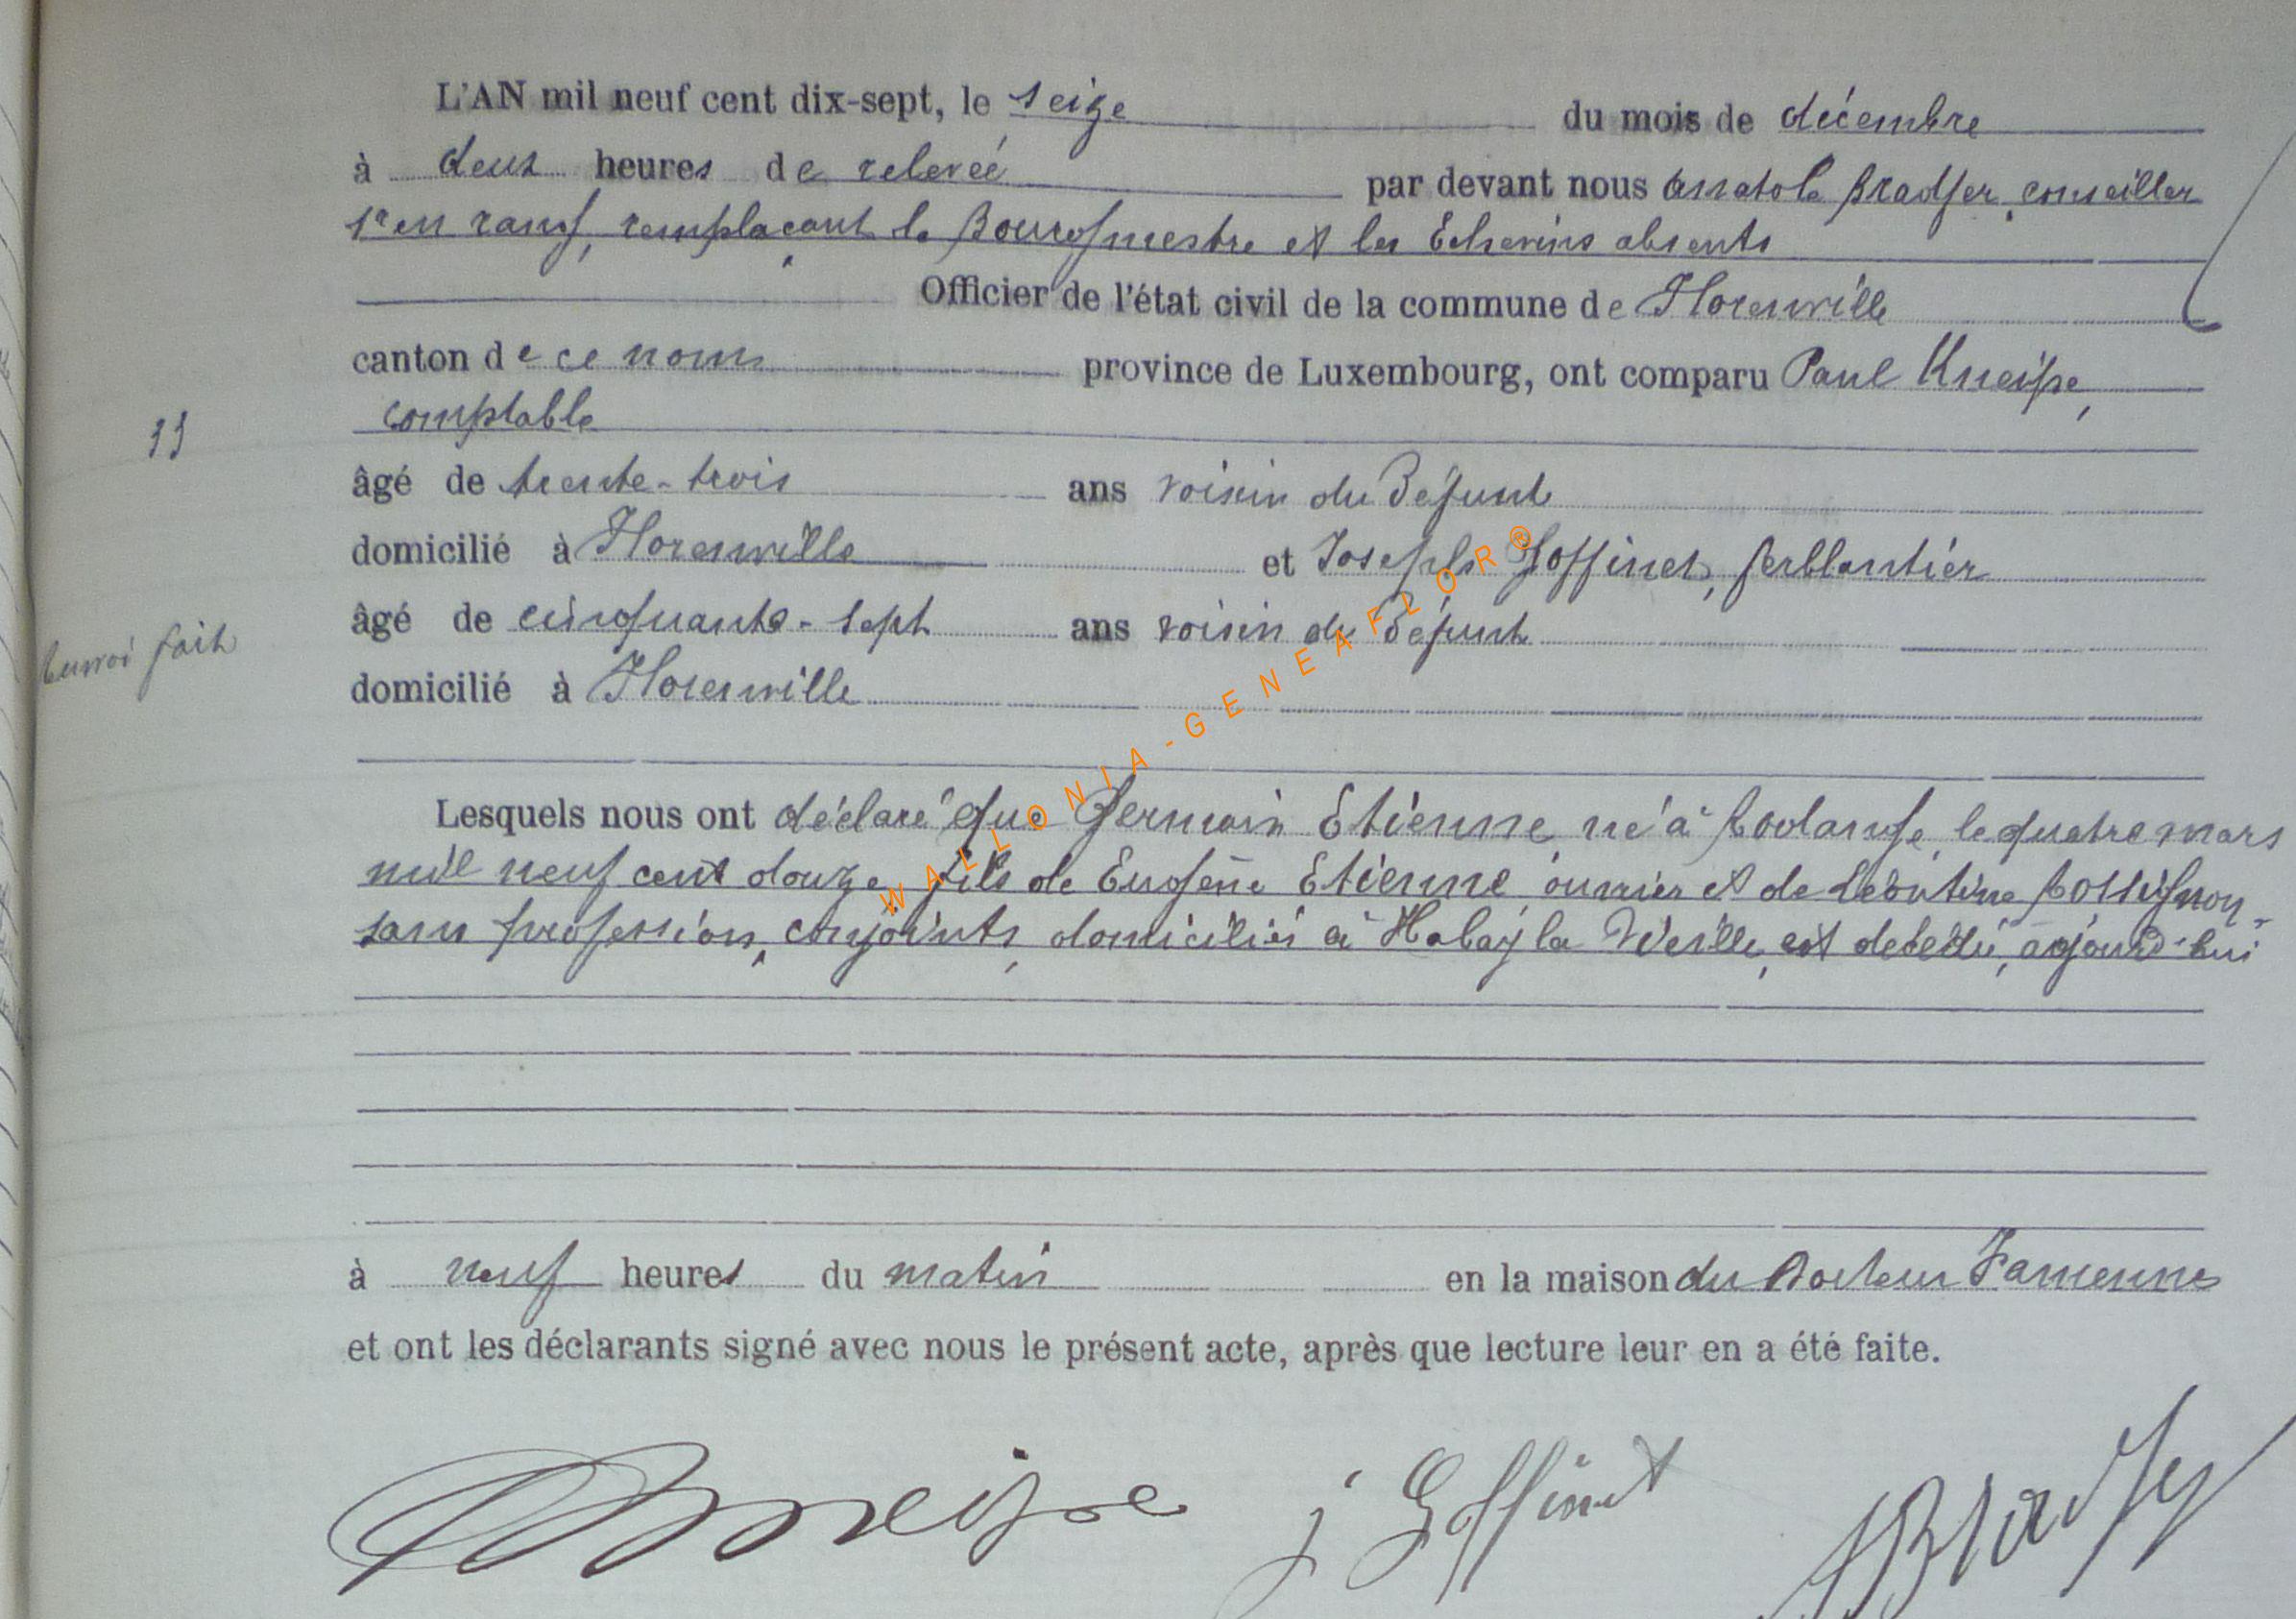 L'AN mil neuf cent dix-sept, le seize du mois de décembre
à deux heures de relevée par devant nous Anatole Bradfer, conseiller
1er en rang, remplaçant le Bourgmestre et les Echevins absents
Officier de l'état civil de la commune de Florenville
canton de ce nom province de Luxembourg, ont comparu Paul Kneipe,
comptable
âgé de trente-trois ans voisin du défunt
domicilié à Florenville et Joseph Goffinet, ferblantier
âgé de cinquante-sept ans voisin du défunt
Envoi fait
domicilié à Florenville
WALLONIA-GENEAFLOR®
Lesquels nous ont déclaré que Germain Etienne, né à Rodange, le quatre mars
mil neuf cent douze, fils de Eugène Etienne, ouvrier et de Léontine Rossignon,
sans profession, conjoints, domiciliés à Habay la Vieille, est decédé, aujourd'hui
à neuf heures du matin en la maison du Docteur Famenne
et ont les déclarants signé avec nous le présent acte, après que lecture leur en a été faite.
Kneipe
J Goffinet
ABradfer